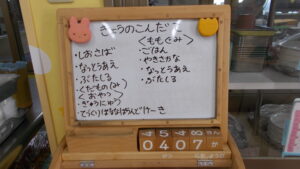 きょうのこんだて
・しおさば
・なっとうあえ
・ぶたじる
くだもの(み)
<おやつ>
・ぎゅうにゅう
・てづくりばななぱうんどけーき
<ももぐみ>
・ごはん
・やきざかな
・なっとうあえ
・ぶたじる
0407
がつ
か